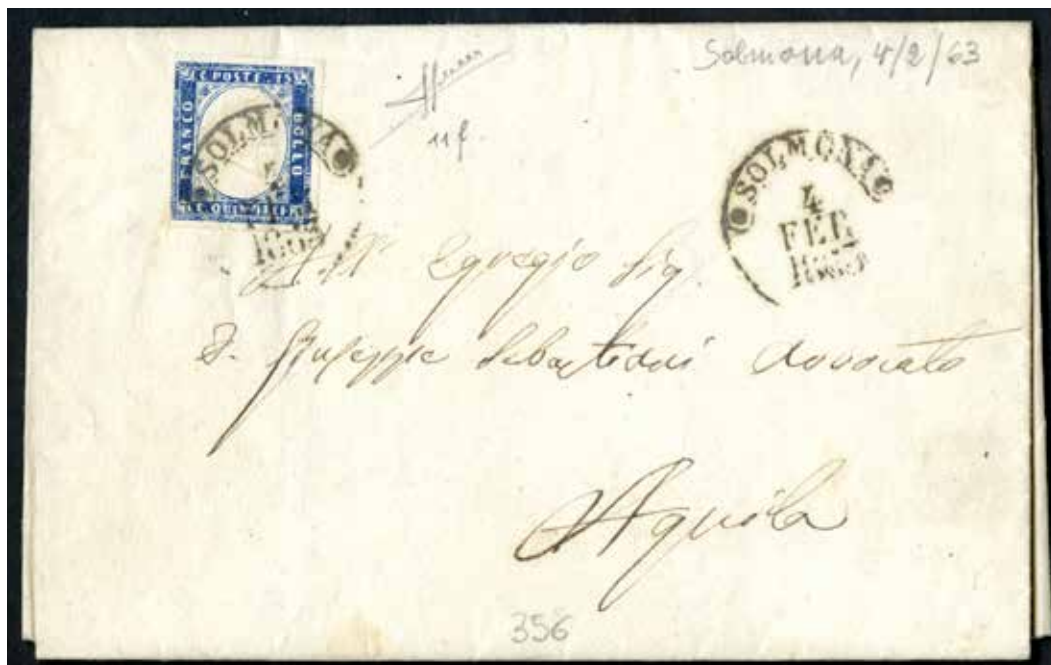 Solmona, 4/2/63
C. POSTE 15
FRANCO
BOLLO
C. QUINDICI
SOLMONA
11f.
SOLMONA
4
FEB
All' Egregio Sig.
D. Giuseppe Sebastiani Avvocato
Aquila
356